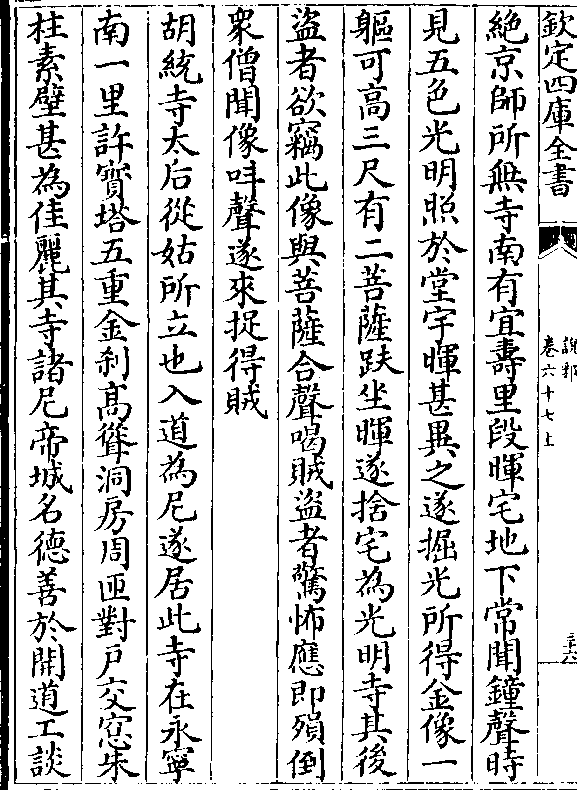 欽定四庫全書
說郛
卷六十七上
絶京師所無寺南有宜壽里段暉宅地下常聞鐘聲時
見五色光明照於堂宇暉甚異之遂掘光所得金像一
軀可高三尺有二菩薩趺坐暉遂捨宅為光明寺其後
盜者欲竊此像與菩薩合聲喝賊盜者驚怖應即殞倒
衆僧聞像呌聲遂來捉得賊
胡統寺太后從姑所立也入道為尼遂居此寺在永寧
南一里許寳塔五重金刹高聳洞房周匝對户交窓朱
柱素壁甚為佳麗其寺諸尼帝城名德善於開道工談